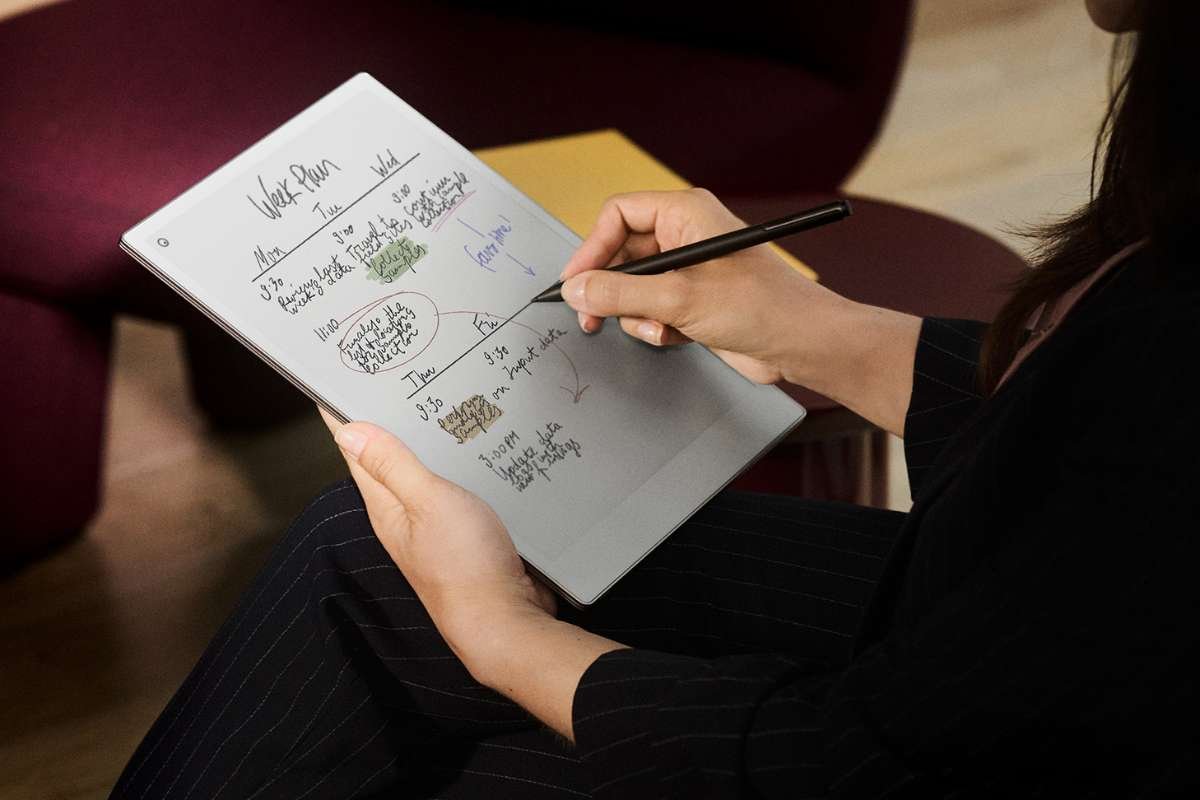 Week Plan
Mon Tue Wed
9:30
Review last
week's data
11:00
Finalize the
list locations
for sample
collection
9:00
Travel to
field sites
Collect
samples
9:00
Continue
with sample
collection
Thu Fri
9:30
Perform
analysis
samples
on
9:30
Input data
3:00 PM
Update data
with
new findings